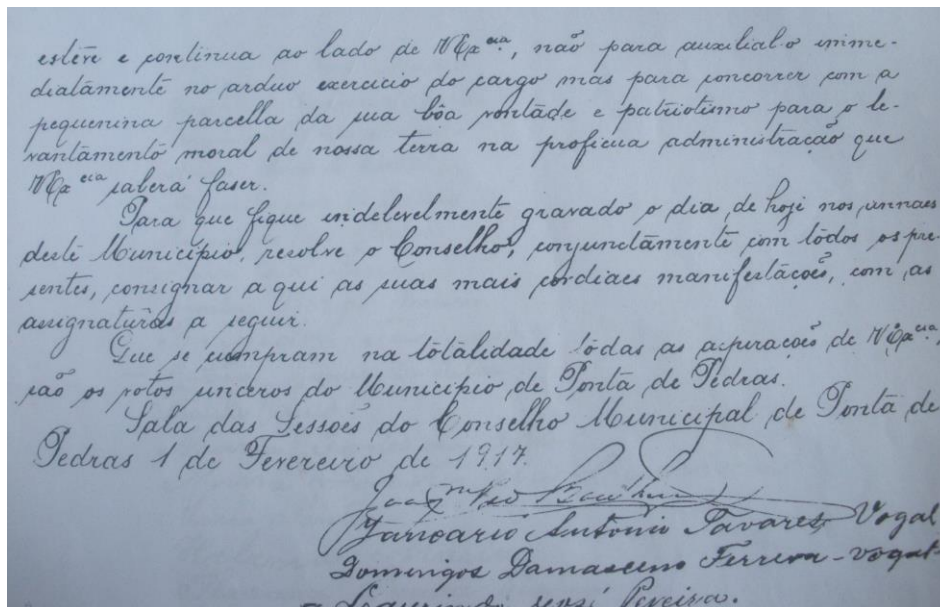 estêve e continua ao lado de V Exᶜⁱᵃ, não para auxilial-o imme-
diatamente no arduo exercicio do cargo mas para concorrer com a
pequenina parcella da sua bôa vontade e patriotismo para o le-
vantamento moral de nossa terra na proficua administração que
V Exᶜⁱᵃ saberá faser.
Para que fique indelevelmente gravado o dia de hoje nos annaes
deste Municipio, resolve o Conselho, conjunctamente com todos os pre-
sentes, consignar aqui as suas mais cordiaes manifestações, com as
assignaturas a seguir.
Que se cumpram na totalidade todas as aspirações de V Exᶜⁱᵃ,
são os votos sinceros do Municipio de Ponta de Pedras.
Sala das Sessões do Conselho Municipal de Ponta de
Pedras 1 de Fevereiro de 1917.
Januario Antonio Tavares, Vogal
Domingos Damasceno Ferreira - vogal -
Pereira.